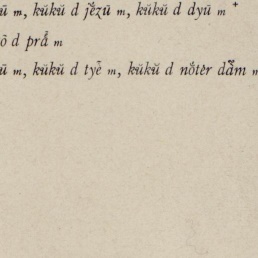 ŭ m, kŭkŭ d jḗzŭ m, kŭkŭ d dyŭ m +
ŏ d prå̄ m
ŭ m, kŭkŭ d tyē m, kŭkŭ d nṓtèr dåm m